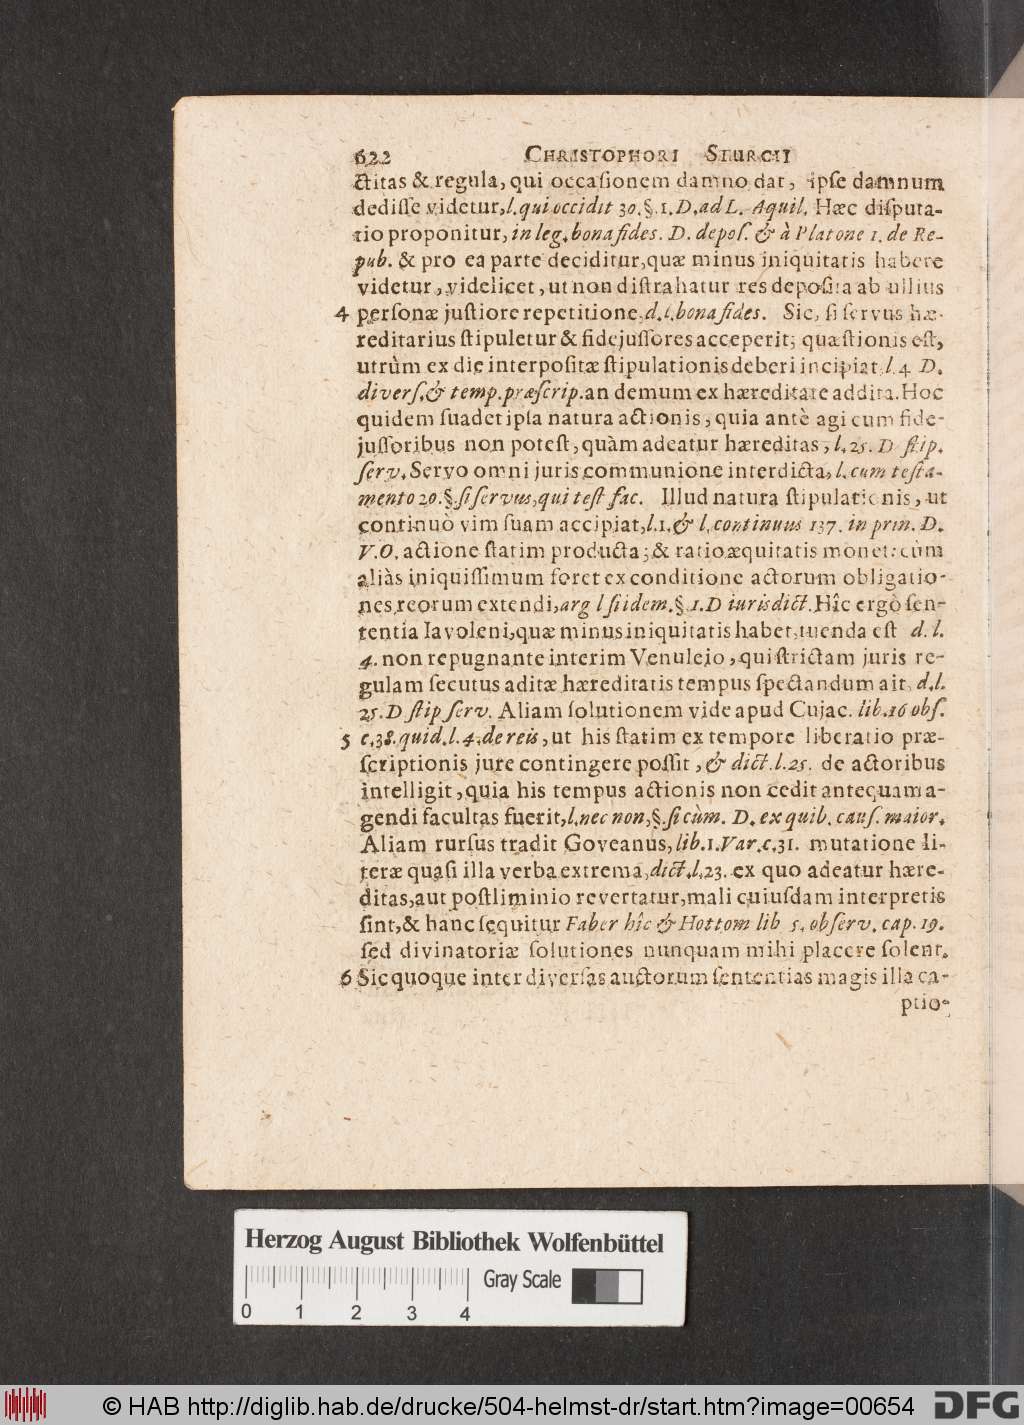 622 CHRISTOPHORI STURCII
ctitas & regula, qui occasionem damno dat, ipse damnum
dedisse videtur, l. qui occidit 30. §. 1. D. ad L. Aquil. Hæc disputa-
tio proponitur, in leg. bona fides. D. depos. & à Platone 1. de Re-
pub. & pro ea parte deciditur, quæ minus iniquitatis habere
videtur, videlicet, ut non distrahatur res deposita ab ullius
4 personæ justiore repetitione, d. l. bona fides. Sic, si servus hæ-
reditarius stipuletur & fidejussores acceperit; quæstionis est,
utrùm ex die interpositæ stipulationis deberi incipiat l. 4 D.
divers. & temp. præscrip. an demum ex hæreditate addita. Hoc
quidem suadet ipsa natura actionis, quia antè agi cum fide-
jussoribus non potest, quàm adeatur hæreditas, l. 25. D stip.
serv. Servo omni juris communione interdicta, l. cum testa-
mento 20. §. si servus, qui test fac. Illud natura stipulationis, ut
continuò vim suam accipiat, l. 1. & l. continuus 137. in prin. D.
V. O. actione statim producta; & ratio æquitatis monet: cùm
aliàs iniquissimum foret ex conditione actorum obligatio-
nes reorum extendi, arg l si idem. §. 1. D iurisdict. Hîc ergò sen-
tentia Iavoleni, quæ minus iniquitatis habet, tuenda est d. l.
4. non repugnante interim Venuleio, qui strictam juris re-
gulam secutus aditæ hæreditatis tempus spectandum ait, d. l.
25. D stip serv. Aliam solutionem vide apud Cujac. lib. 16 obs.
5 c. 38. quid. l. 4. de reis, ut his statim ex tempore liberatio præ-
scriptionis jure contingere possit, & dict. l. 25. de actoribus
intelligit, quia his tempus actionis non cedit antequam a-
gendi facultas fuerit, l. nec non, §. si cùm. D. ex quib. caus. maior.
Aliam rursus tradit Goveanus, lib. 1. Var. c. 31. mutatione li-
teræ quasi illa verba extrema, dict. l. 23. ex quo adeatur hære-
ditas, aut postliminio revertatur, mali cuiusdam interpretis
sint, & hanc sequitur Faber hîc & Hottom lib 5. observ. cap. 19.
sed divinatoriæ solutiones nunquam mihi placere solent.
6 Sic quoque inter diversas auctorum sententias magis illa ca-
ptio-
Herzog August Bibliothek Wolfenbüttel
Gray Scale
0 1 2 3 4
© HAB http://diglib.hab.de/drucke/504-helmst-dr/start.htm?image=00654
DFG